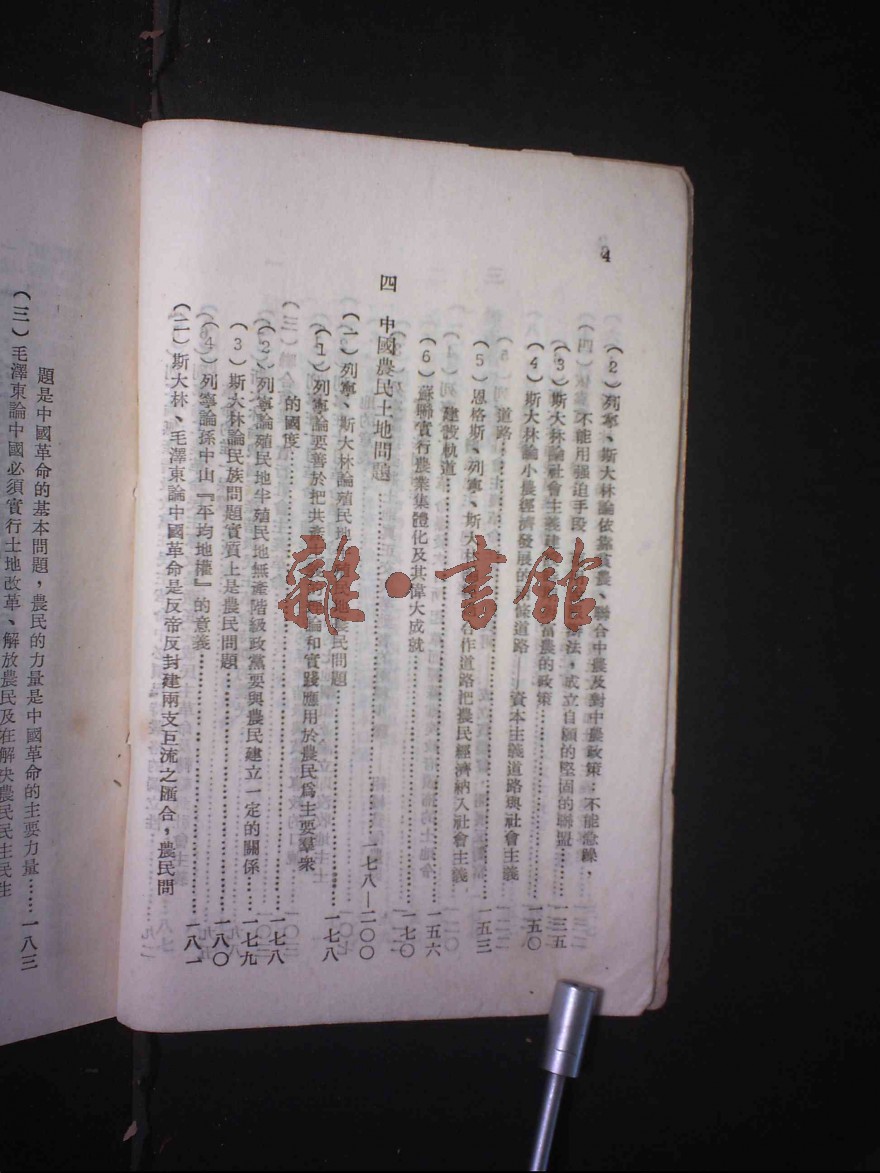 4
（2）列寧、斯大林論依靠貧農、聯合中農及對中農政策：不能急躁，
不能用强迫手段
法，成立自願的堅固的聯盟………一三五
（3）斯大林論社會主義建
富農的政策
（4）斯大林論小農經濟發展的
道路——資本主義道路與社會主義
道路………一五〇
（5）恩格斯、列寧、斯大林
合作道路把農民經濟納入社會主義
建設軌道………一五三
（6）蘇聯實行農業集體化及其偉大成就………一五六
一七〇
四 中國農民土地問題………一七八—二〇〇
（一）列寧、斯大林論殖民地
農民問題………一七八
（1）列寧論要善於把共產
論和實踐應用於農民爲主要羣衆
的國度………一七八
（2）列寧論殖民地半殖民地無產階級政黨要與農民建立一定的關係………一七九
（3）斯大林論民族問題實質上是農民問題………一八〇
（4）列寧論孫中山『平均地權』的意義………一八一
（二）斯大林、毛澤東論中國革命是反帝反封建兩支巨流之匯合，農民問
題是中國革命的基本問題，農民的力量是中國革命的主要力量……一八三
（三）毛澤東論中國必須實行土地改革、解放農民及在解決農民民主民生
雜·書館